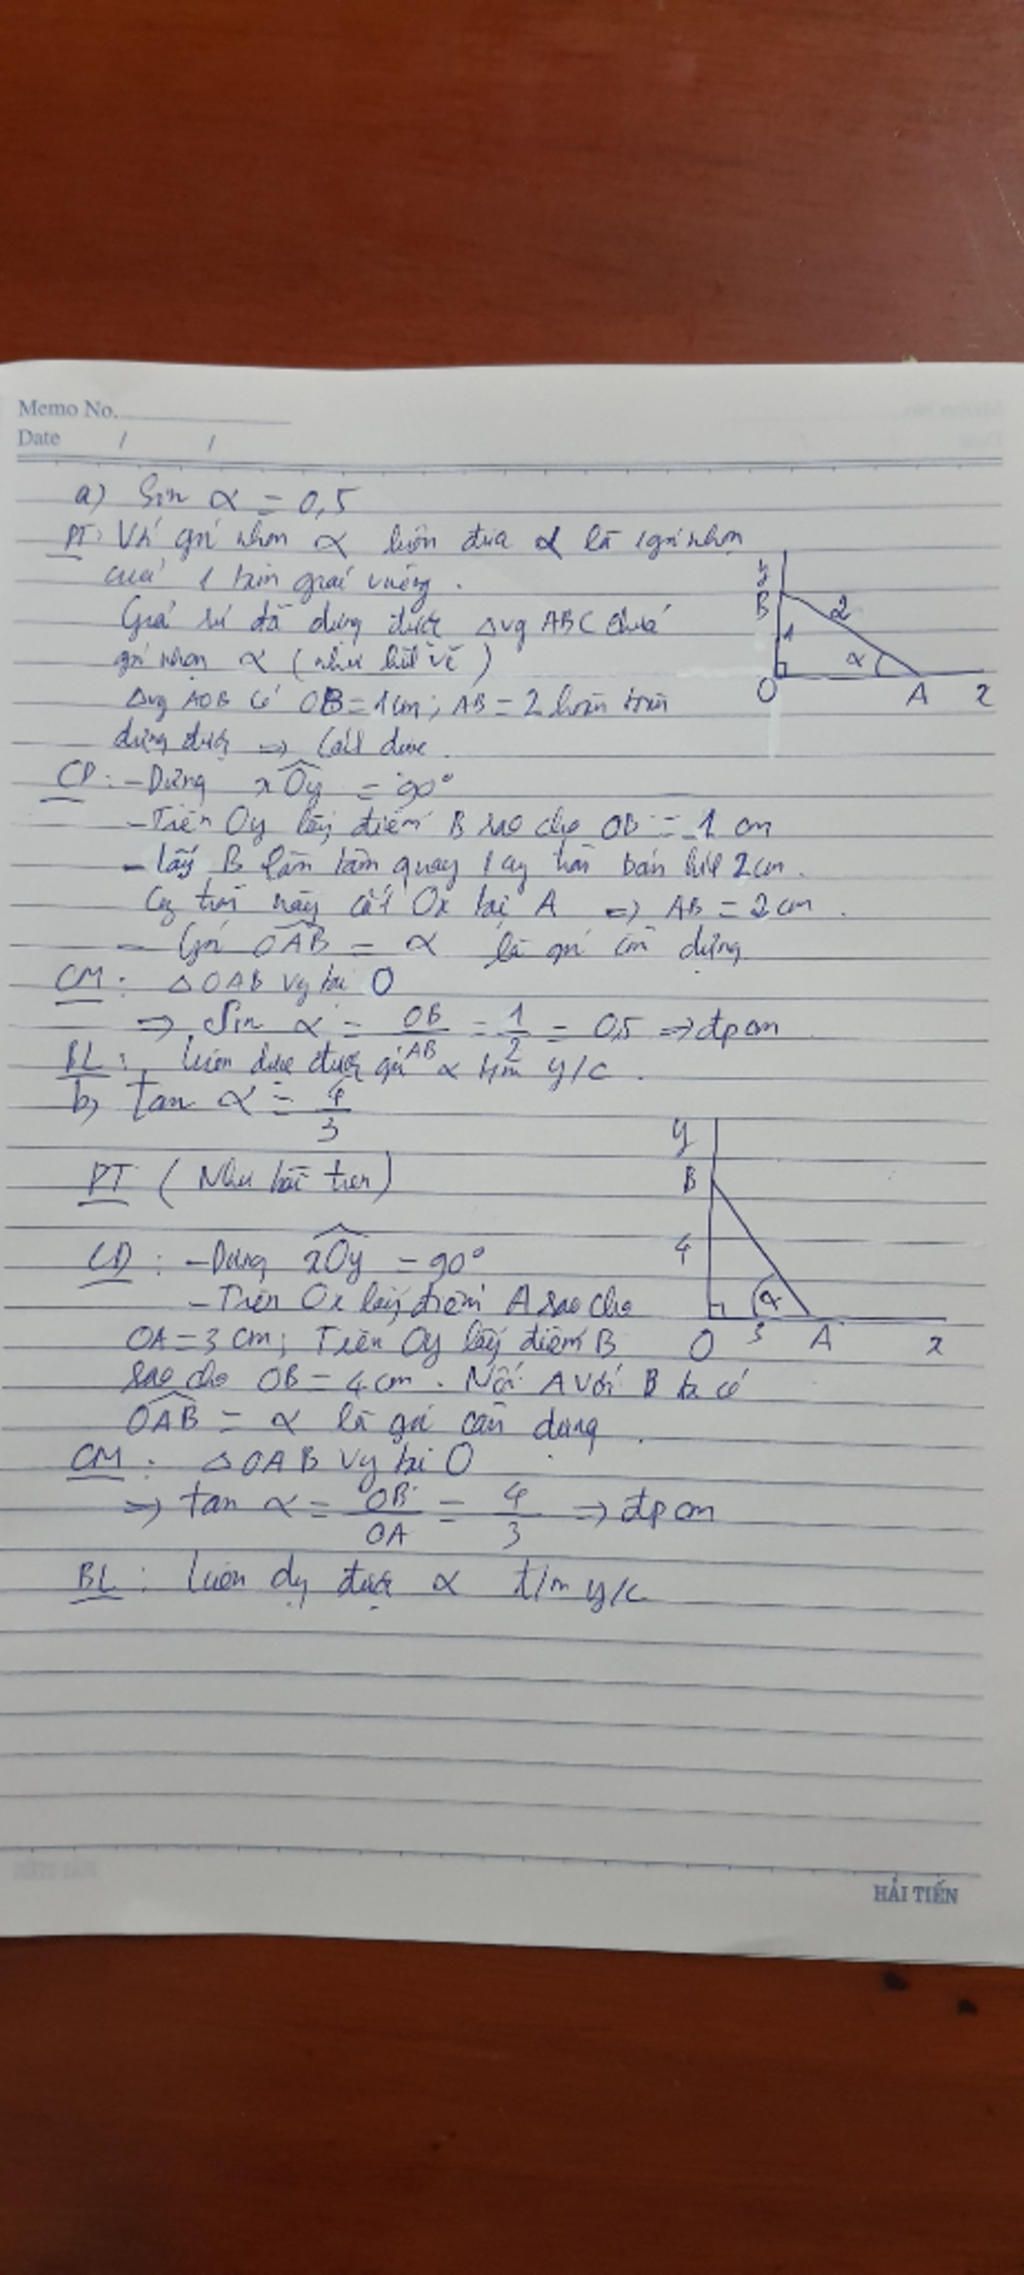 Memo No.
Date / /
a) Sin α = 0,5
PT: Với góc nhọn α luôn đưa α là 1 góc nhọn
của 1 tam giác vuông.
Giả sử đã dựng được Δvg ABC chứa
góc nhọn α (như hình vẽ)
Δvg AOB có OB = 1cm; AB = 2 hoàn toàn
dựng được =>
CD: - Dựng xOy = 90°
- Trên Oy lấy điểm B sao cho OB = 1 cm
- Lấy B làm tâm quay 1 cg tròn bán kính 2cm.
Cg tròn này cắt Ox tại A => AB = 2cm.
- Góc OAB = α là góc cần dựng
CM: ΔOAB vg tại O
=> Sin α = OB/AB = 1/2 = 0,5 => đpcm
BL: luôn được góc α t/m y/c.
b) Tan α = 4/3
PT (Như bài trên)
CD: - Dựng xOy = 90°
- Trên Ox lấy điểm A sao cho
OA = 3 cm; Trên Oy lấy điểm B
sao cho OB = 4 cm. Nối A với B ta có
OAB = α là góc cần dựng.
CM: ΔOAB vg tại O
=> tan α = OB/OA = 4/3 => đpcm
BL: luôn dg được α t/m y/c
y
B
2
1
α
O
A
x
y
B
4
α
O
3
A
x
HẢI TIẾN